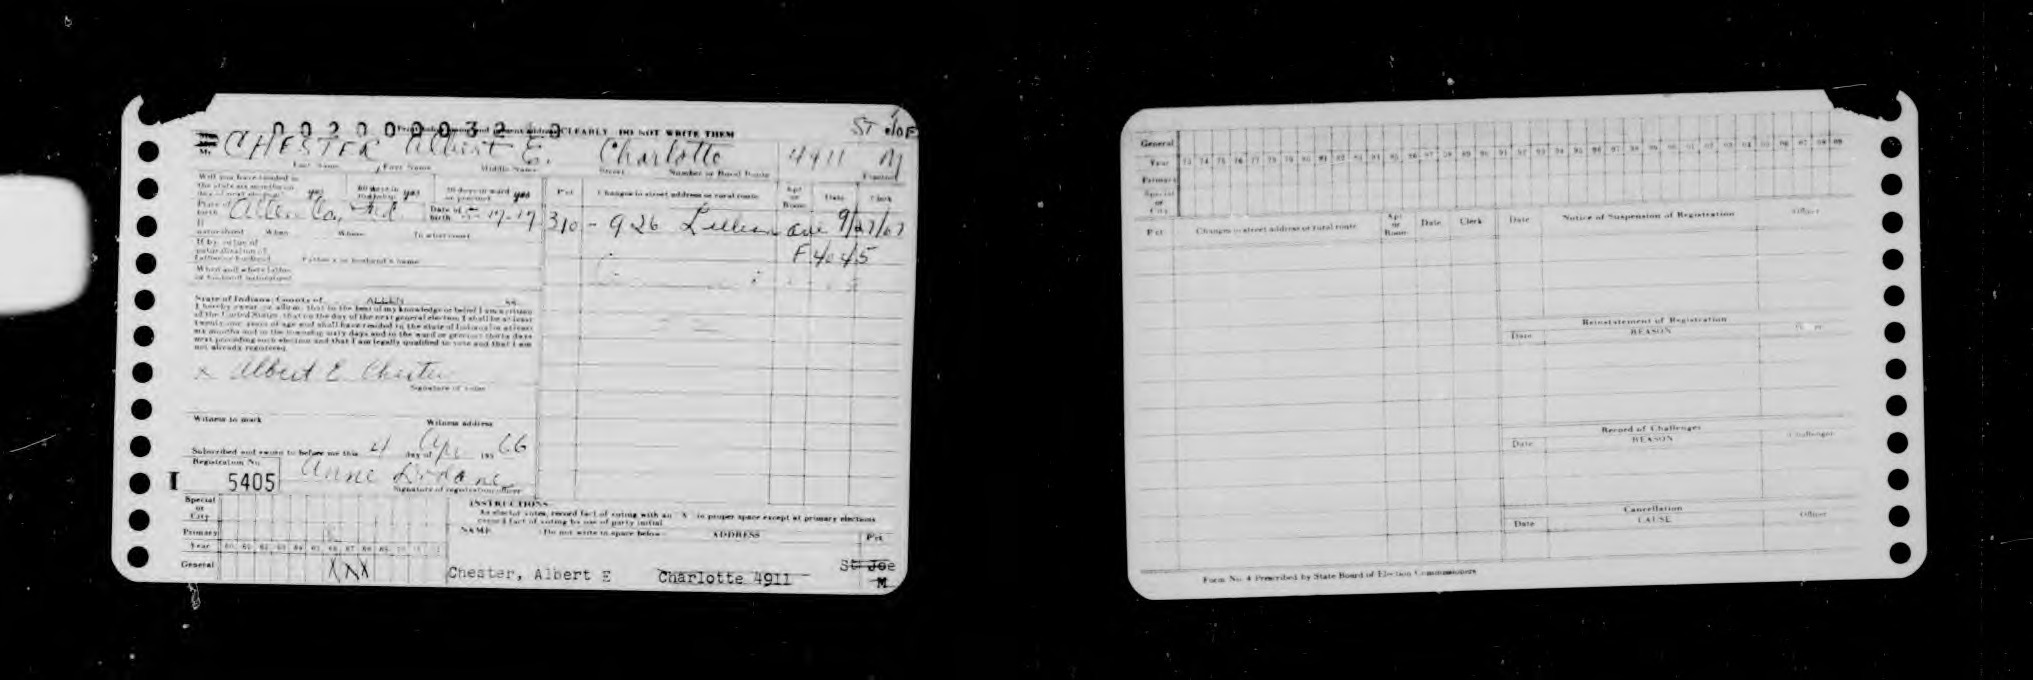 002000032
CLEARLY DO NOT WRITE THEM
CHESTER Albert E. Charlotte 4911 M
Last Name First Name Middle Name Street Number or Rural Route Precinct
Will you have resided in
the state six months on yes 60 days in yes 30 days in ward yes
day of next election? township or precinct
Place of birth Allen Co, Ind. Date of birth -17-17
If naturalized When Where In what court
If by virtue of
naturalization of
father or husband Father's or husband's name
When and where father
or husband naturalized
Pct Changes in street address or rural route Apt or Room Date Clerk
310 - 926 Lillian ave 9/27/67
F 4045
State of Indiana, County of ALLEN ss.
I hereby swear or affirm, that to the best of my knowledge or belief I am a citizen
of the United States, that on the day of the next general election I shall be at least
twenty-one years of age and shall have resided in the state of Indiana for at least
six months and in the township sixty days and in the ward or precinct thirty days
next preceding such election and that I am legally qualified to vote and that I am
not already registered.
x Albert E. Chester
Signature of voter
Witness to mark Witness address
Subscribed and sworn to before me this 4 day of Apr 19 66
Registration No.
I 5405 Anne
Signature of registration officer
INSTRUCTIONS
As elector votes, record fact of voting with an "X" in proper space except at primary elections
record fact of voting by use of party initial
Special
or
City
Primary
Year
General X X X
NAME Do not write in space below ADDRESS Pct
Chester, Albert E Charlotte 4911 St Joe
M
General
Year
Primary
Special
or
City
Pct Changes in street address or rural route Apt or Room Date Clerk
Date Notice of Suspension of Registration Officer
Reinstatement of Registration
Date REASON
Record of Challenges
Date REASON Challenger
Cancellation
Date CAUSE Officer
Form No. 4 Prescribed by State Board of Election Commissioners